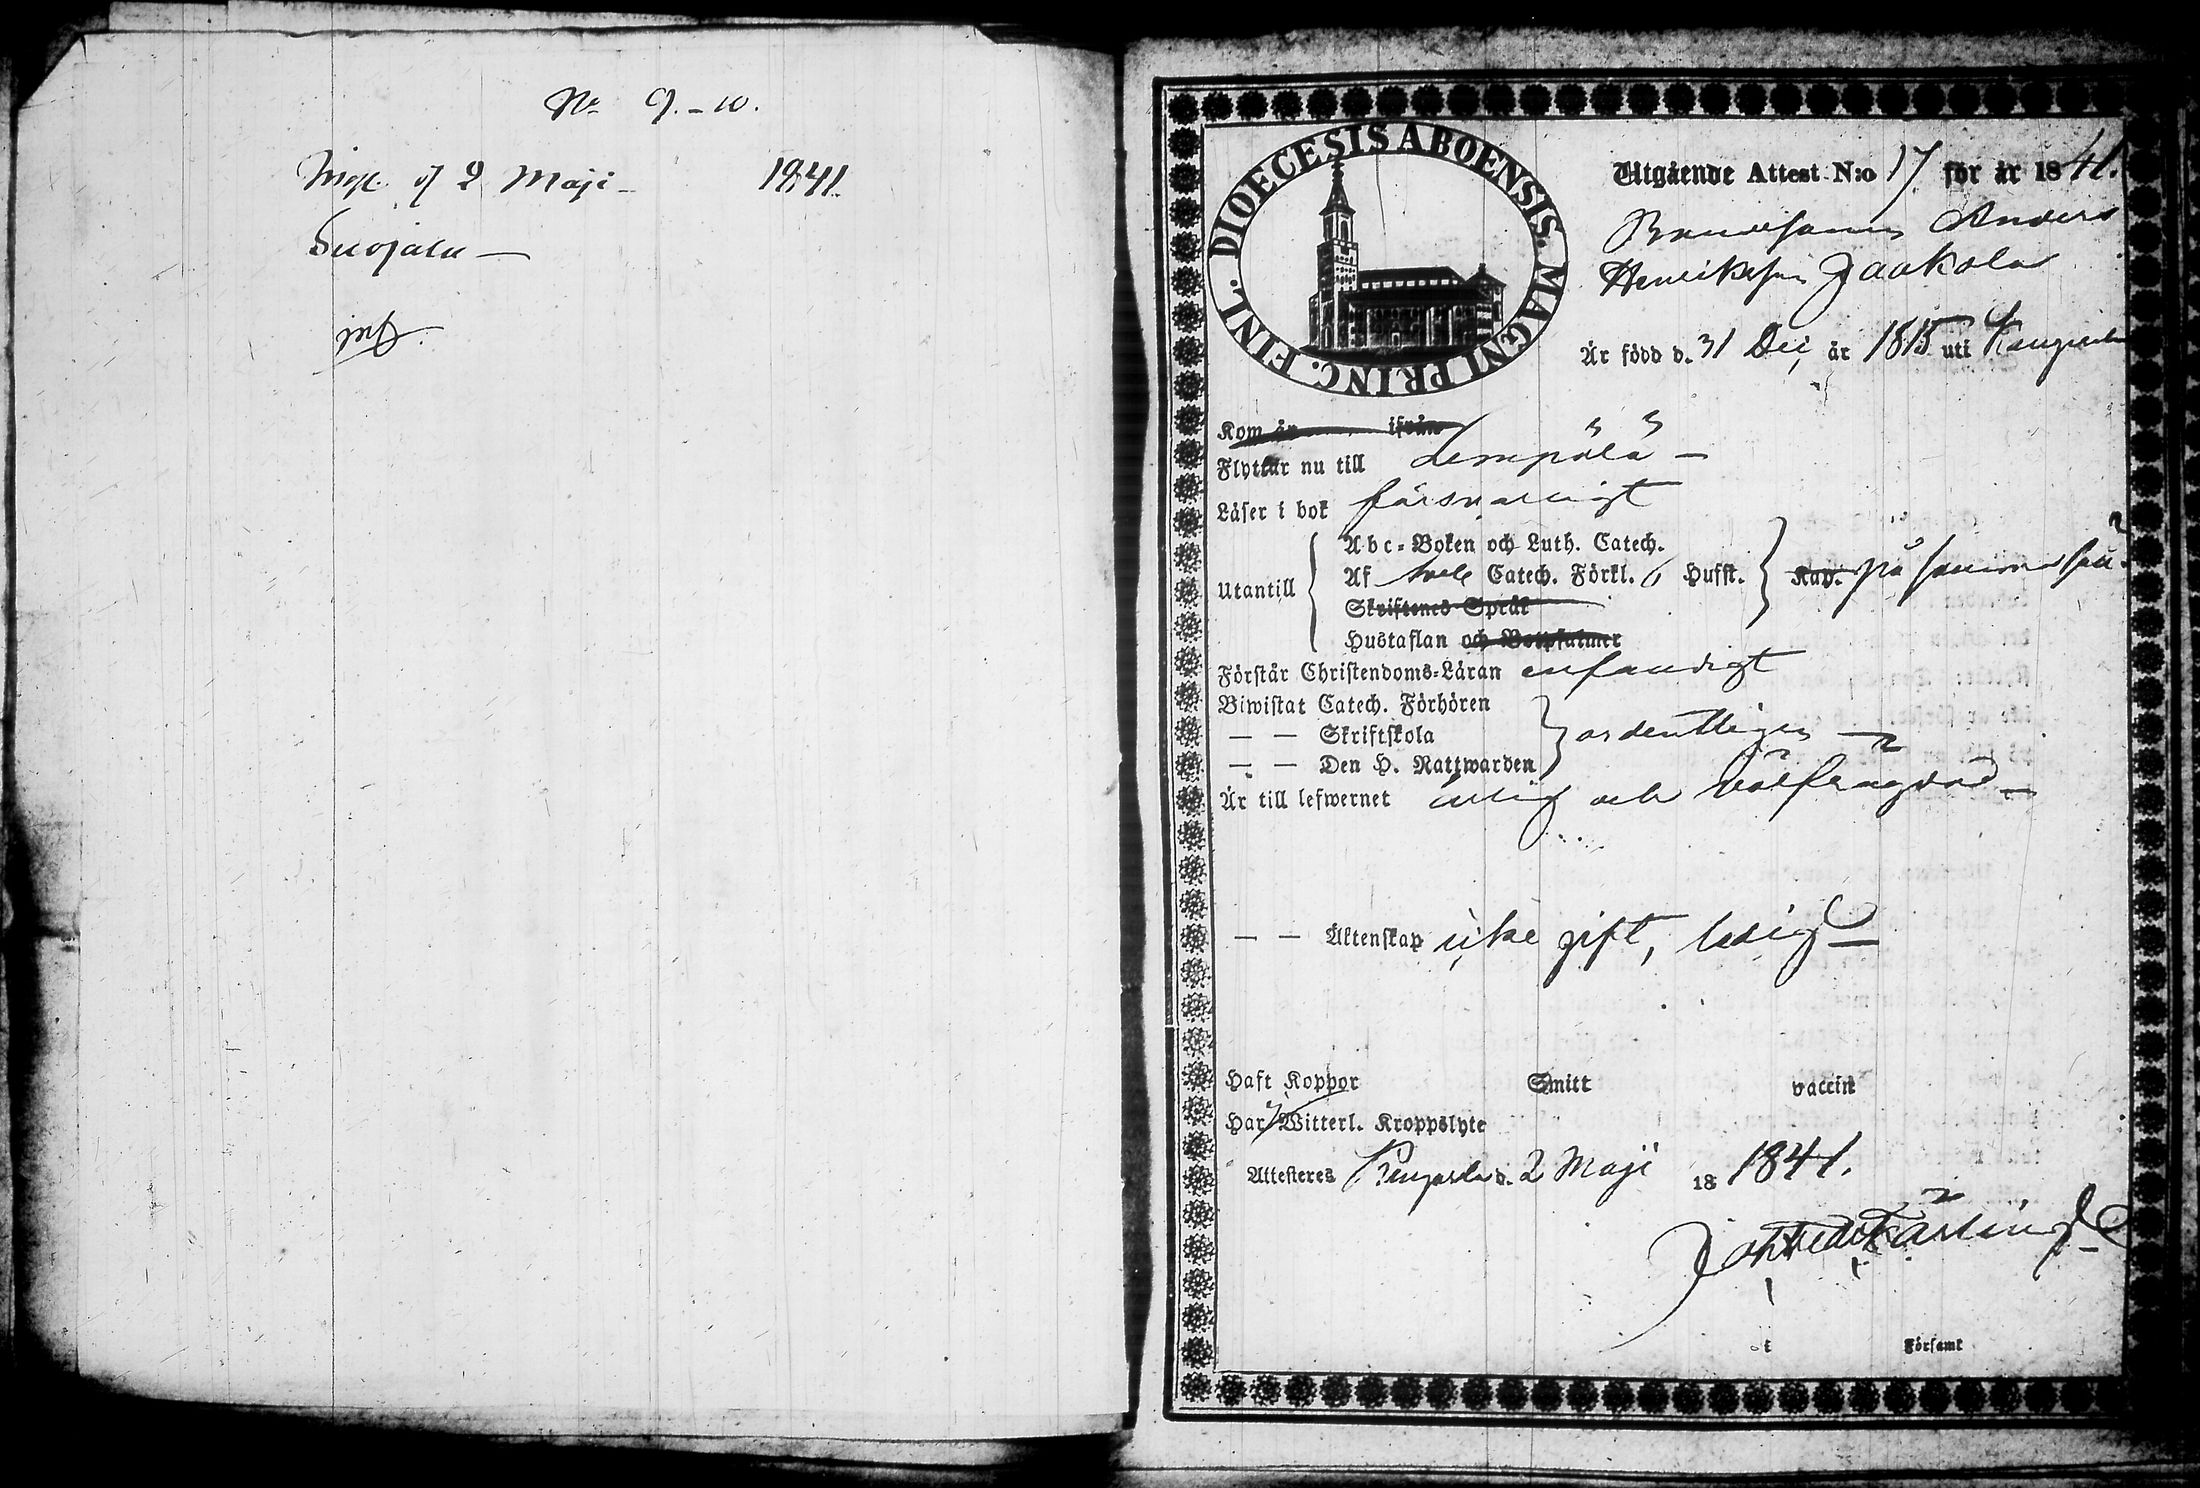 No 9.-10.
Inst. af 2 Maji 1841.
Suojala
DIOECESIS ABOENSIS. MAGNI PRINC. FINL.
Utgående Attest N:o 17 för år 1841.
Bondesonen Anders
Henriksson Jaakola
Är född d. 31 Dec, år 1815 uti Kangasala
Kom år ifrån
Flyttar nu till Lempälä
Läser i bok försvarligt
Utantill
Abc-Boken och Luth. Catech.
Af Catech. Förkl. Husst. Kap. på samma sätt
Skriftenes Språk
Hustaflan och Botpsalmer
Förstår Christendoms-Läran enfaldigt
Biwistat Catech. Förhören
— — Skriftskola ordentligen
— — Den H. Nattwarden
Är till lefwernet ärlig och välfrägdad
— — Äktenskap icke gift, ledig
Haft Koppor Smitt vaccin
Har Witterl. Kroppslyte
Attesteras d. 2 Maji 18 1841.
Församl